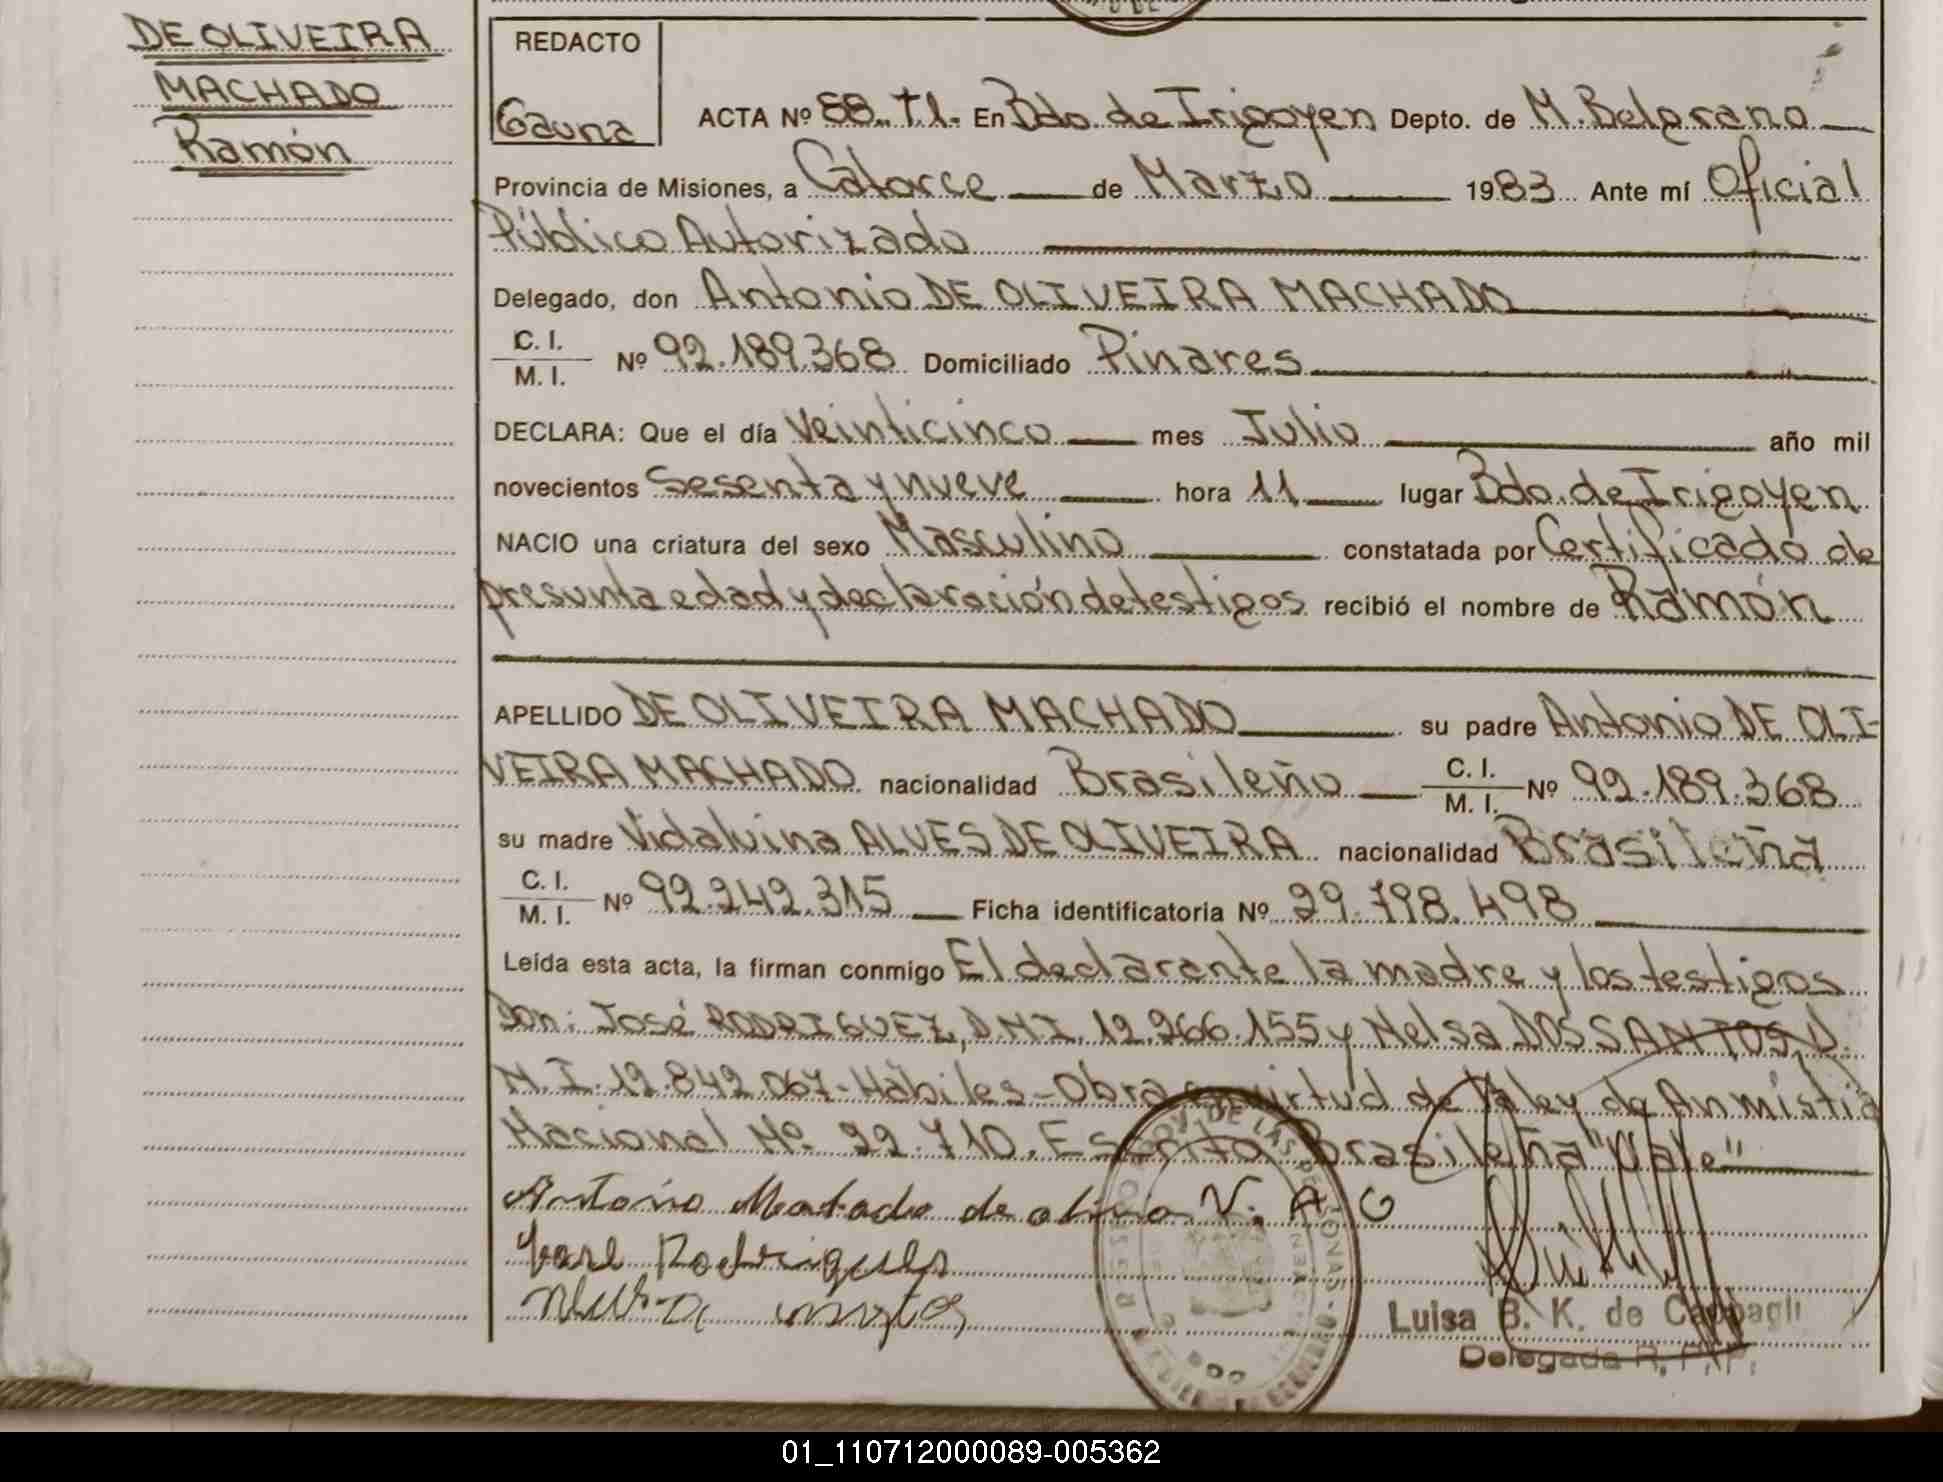 DE OLIVEIRA
MACHADO
Ramón
REDACTO
Gauna
ACTA Nº 58. T1. En Bdo. de Irigoyen Depto. de M. Belgrano
Provincia de Misiones, a Catorce de Marzo 1983 Ante mí Oficial
Público Autorizado
Delegado, don Antonio DE OLIVEIRA MACHADO
C. I.
M. I. Nº 92.189.368 Domiciliado Pinares
DECLARA: Que el día Veinticinco mes Julio año mil
novecientos Sesenta y nueve hora 11 lugar Bdo. de Irigoyen
NACIO una criatura del sexo Masculino constatada por Certificado de
presunta edad y declaración de testigos recibió el nombre de Ramón
APELLIDO DE OLIVEIRA MACHADO su padre Antonio DE OLI-
VEIRA MACHADO nacionalidad Brasileño C. I. M. I. Nº 92.189.368
su madre Vidalvina ALVES DE OLIVEIRA nacionalidad Brasileña
C. I.
M. I. Nº 92.242.315 Ficha identificatoria Nº 29.798.498
Leída esta acta, la firman conmigo El declarante la madre y los testigos
Don: José RODRIGUEZ, D.N.I. 12.266.155 y Nelsa DOS SANTOS, D.
N.I. 12.842.067-Hábiles-Obra en virtud de la ley de Anmistia
Nacional Nº 22.710. Escrito Brasileña "Vale"
Antonio Machado de V. A O
José Rodrigues
Luisa B. K. de Cappagli
Delegada R. P.
01_110712000089-005362